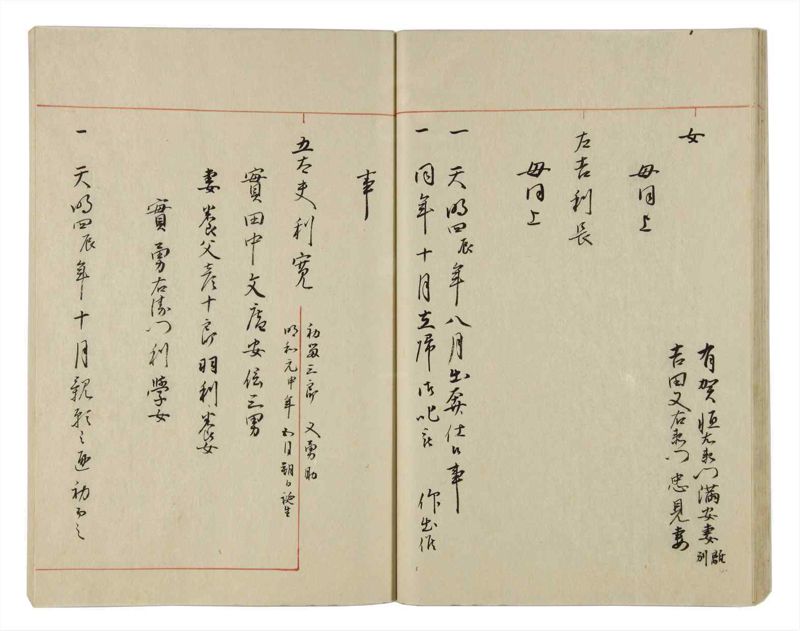 女
有賀恒右衛門満安妻 離別
吉田又右衛門忠見妻
母同上
左吉利長
母同上
一 天明四辰年八月出奔仕候事
一 同年十月立帰 御叱 被 仰出候
事
五太夫利寛
初 三郎 又勇助
明和元申年 月朔日誕生
實田中文 安 三男
妻養父彦十郎 利養女
實勇右衛門利 女
一 天明四辰年十月親類